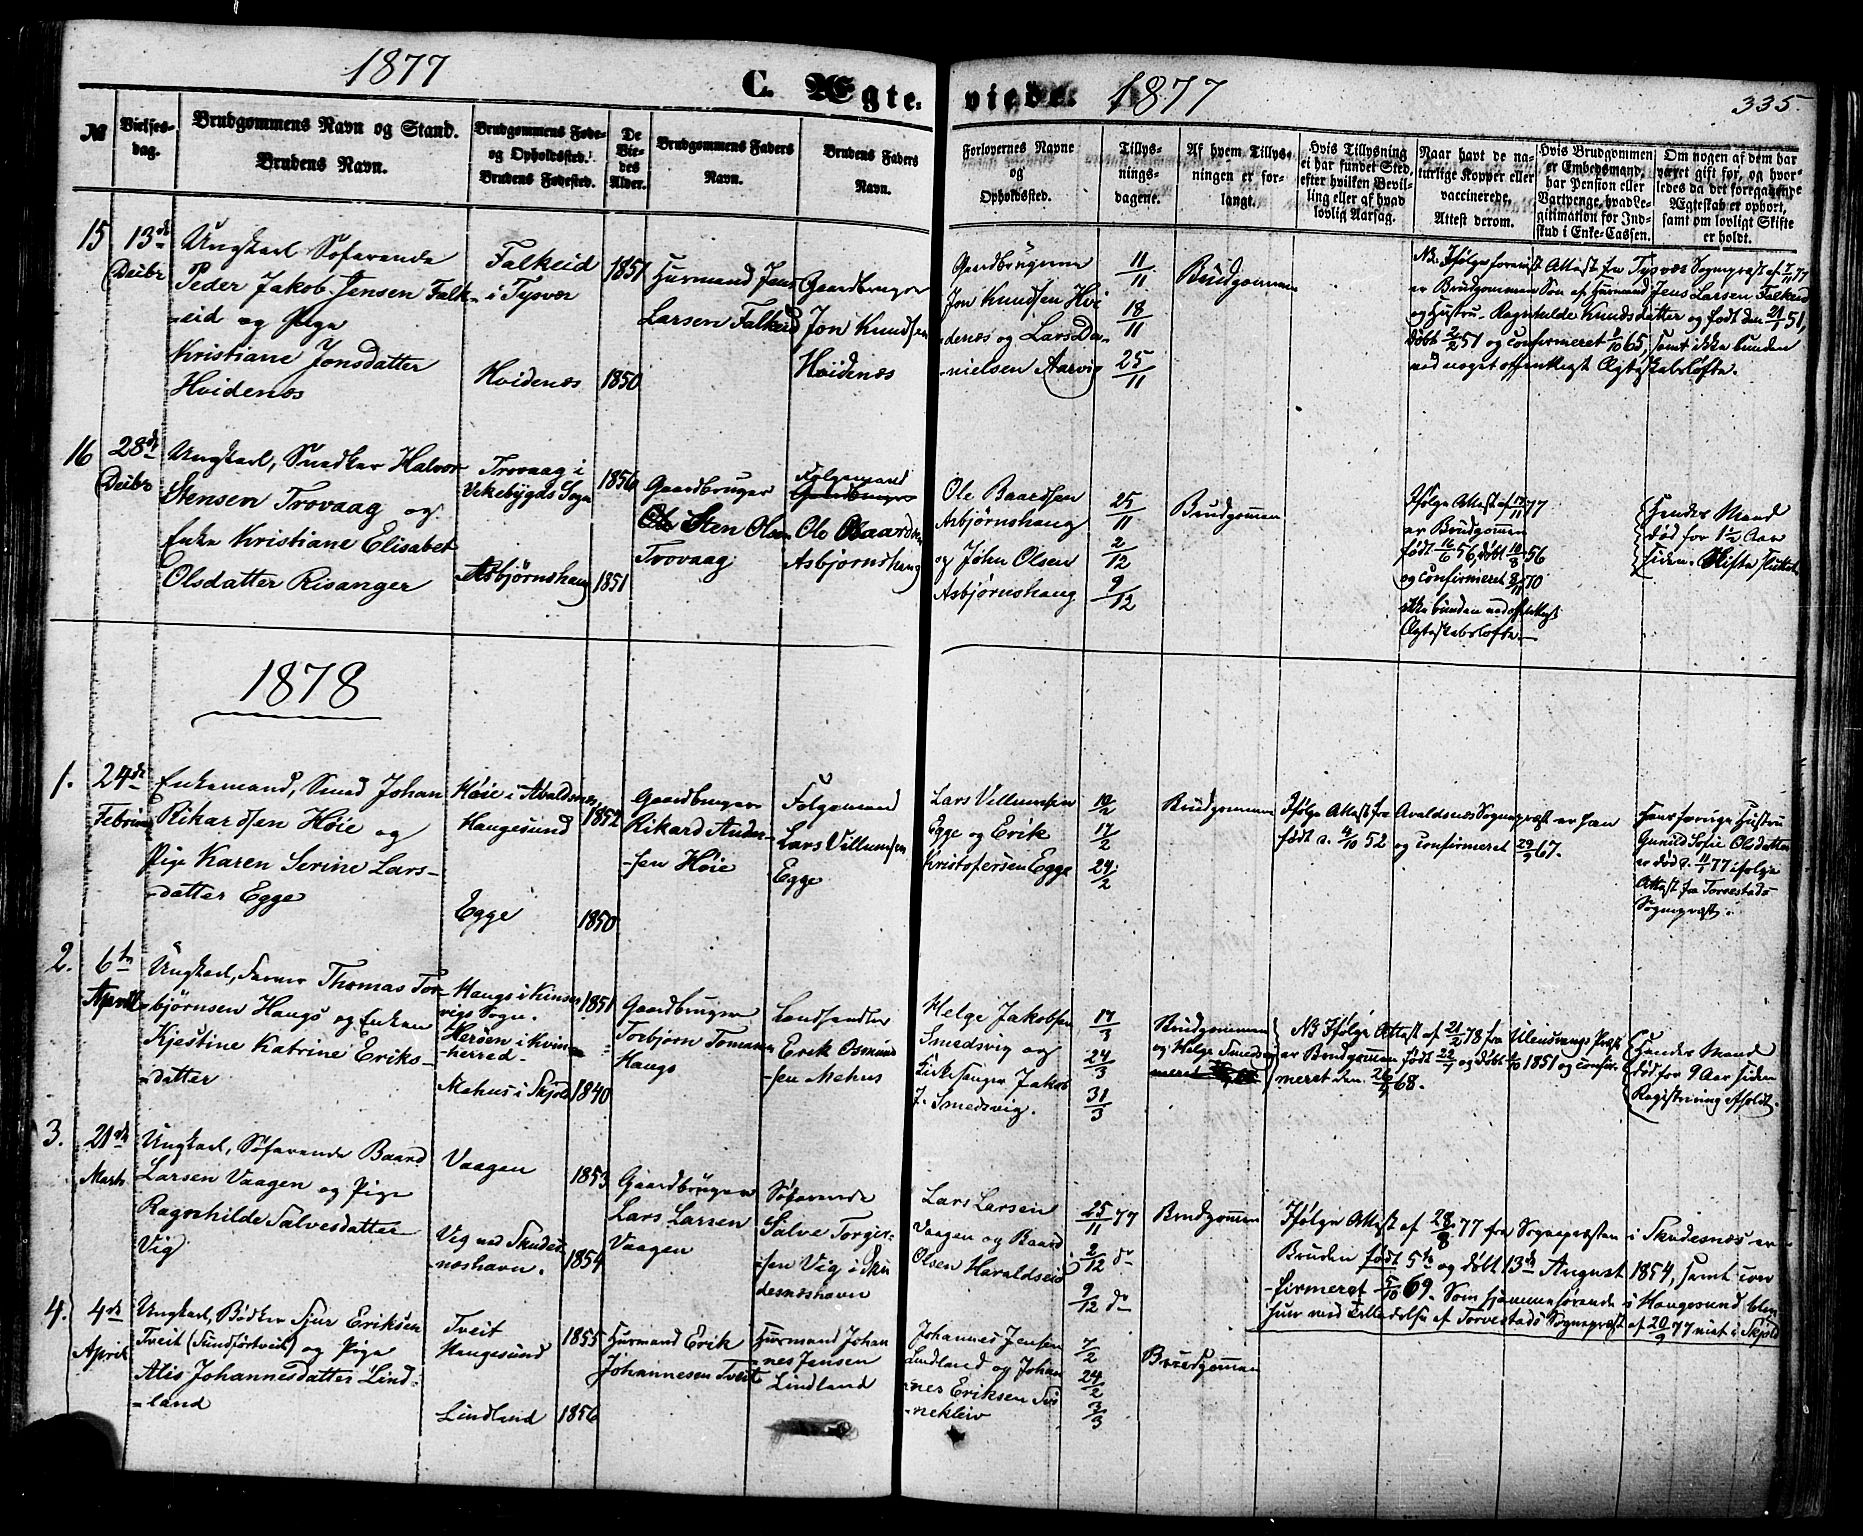 1877
C. Ægte-
viede.
1877
335.
№
Vielses-
dag.
Brudgommens Navn og Stand.
Brudens Navn.
Brudgommens Føde-
og Opholdssted.
Brudens Fødested.
De
Vie-
des
Alder.
Brudgommens Faders
Navn.
Brudens Faders
Navn.
Forlovernes Navne
og
Opholdssted.
Tillys-
nings-
dagene.
Af hvem Tillys-
ningen er for-
langt.
Hvis Tillysning
ei har fundet Sted,
efter hvilken Bevil-
ling eller af hvad
lovlig Aarsag.
Naar havt de na-
turlige Kopper eller
vaccinerede,
Attest derom.
Hvis Brudgommen
er Embedsmand,
har Pension eller
Vartpenge, hvad Le-
gitimation for Ind-
skud i Enke-Cassen.
Om nogen af dem har
været gift før, og hvor-
ledes da det foregaaende
Ægteskab er ophørt,
samt om lovligt Skifte
er holdt.
15
13de
Decbr
Ungkarl Søfarende
Peder Jakob Jensen Falk-
-eid og Pige
Kristiane Jonsdatter
Hvidenæs
Falkeid
i Tysvær
Hvidenæs
1851
1850
Huusmand Jens
Larsen Falkeid
Gaardbruger
Jon Knudsen
Hvidenæs
Gaardbrugerne
Jon Knudsen Hvi-
-denæs og Lars Da-
-nielsen Aarvig
11/11
18/11
25/11
Brudgommen
NB. Ifølge foreviist Attest fra Tysvær Sognepræst af 7/11 77
er Brudgommen Søn af Huusmand Jens Larsen Falkeid
og Hustru Ragnhilde Knudsdatter og født den 21/1 51,
døbt 2/2 51 og confirmeret 1/10 65, samt ikke bunden
ved noget offentligt Ægteskabsløfte.
16
28de
Decbr
Ungkarl, Snedker Halvor
Stensen Trovaag og
Enke Kristiane Elisabet
Olsdatter Risanger
Trovaag i
Vikebygds Sogn
Asbjørnshaug
1856
1851
Gaardbruger
Ole Sten Olsen
Trovaag
Folgemand
Gaardbruger
Ole Baardsen
Asbjørnshaug
Ole Baardsen
Asbjørnshaug
og John Olsen
Asbjørnshaug
25/11
2/12
9/12
Brudgommen
Ifølge Attest af 17/11 77
er Brudgommen
født 16/6 56, døbt 10/8 56
og confirmeret 8/11 70
ikke bunden ved offentligt
Ægteskabsløfte.
Hendes Mand
død for 1 1/2 Aar
siden. Skifte sluttet.
1878
1.
24de
Februar
Enkemand, Smed Johan
Rikardsen Høie og
Pige Karen Serine Lars-
-datter Egge
Høie i Avaldsnes,
Haugesund
Egge
1852
1850
Gaardbruger
Rikard Ander-
-sen Høie
Folgemand
Lars Villumsen
Egge
Lars Villumsen
Egge og Erik
Kristofersen Egge
10/2
17/2
24/2
Brudgommen
Ifølge Attest fra Avaldsnes Sognepræst er han
født d. 4/10 52 og confirmeret 29/9 67.
Hans forrige Hustru
Gunild Sofie Olsdatter
er død d. 11/7 77 ifølge
Attest fra Torvestads
Sognepræst.
2.
6te
April
Ungkarl, Farver Thomas Tor-
-bjørnsen Haugs og Enken
Kjestine Katrine Eriks-
-datter
Haugs i Kinser
vigs Sogn.
Herøen i Kvin-
herred
Mehus i Skjold
1851
1840
Gaardbruger
Torbjørn Tomassen
Haugs
Landhandler
Erik Osmund
-sen Mehus
Helge Jakobsen
Smedsvig og
Kirkesanger Jakob
J. Smedsvig.
17/3
24/3
31/3
Brudgommen
og Helge Smedsvig
NB Ifølge Attest af 21/2 78 fra Ullensvangs Præst
er Brudgommen født 22/7 og døbt 5/10 1851 og confir-
meret den 26/4 68.
Hendes Mand
død for 9 Aar siden
Registrering afholdt.
3.
21de
Marts
Ungkarl, Søfarende Baard
Larsen Vaagen og Pige
Ragnhilde Salvesdatter
Vig
Vaagen
Vig ved Skudes-
neshavn.
1853
1854
Gaardbruger
Lars Larsen
Vaagen
Søfarende
Salve Torger-
-sen Vig i Sku
desneshavn
Lars Larsen
Vaagen og Baard
Olsen Haraldseid
25/11 77
2/12 do
9/12 do
Brudgommen
Ifølge Attest af 28/8 77 fra Sognepræsten i Skudesnæs er
Bruden født 5te og døbt 13de August 1854, samt con
-firmeret 5/10 69. Som hjemmehørende i Haugesund blev
hun med Tilladelse af Torvestads Sognepræst af 20/9 77 viet i Skjold
4.
4de
April
Ungkarl, Bødker Sjur Eriksen
Tveit (Sundførtveit) og Pige
Alis Johannesdatter Lind-
-land
Tveit
Haugesund
Lindland
1855
1856
Huusmand Erik
Johannesen Tveit
Huusmand Johan
nes Jensen
Lindland
Johannes Jensen
Lindland og Johan
-nes Eriksen Svi
-nekleiv
7/2
24/2
3/3
Brudgommen